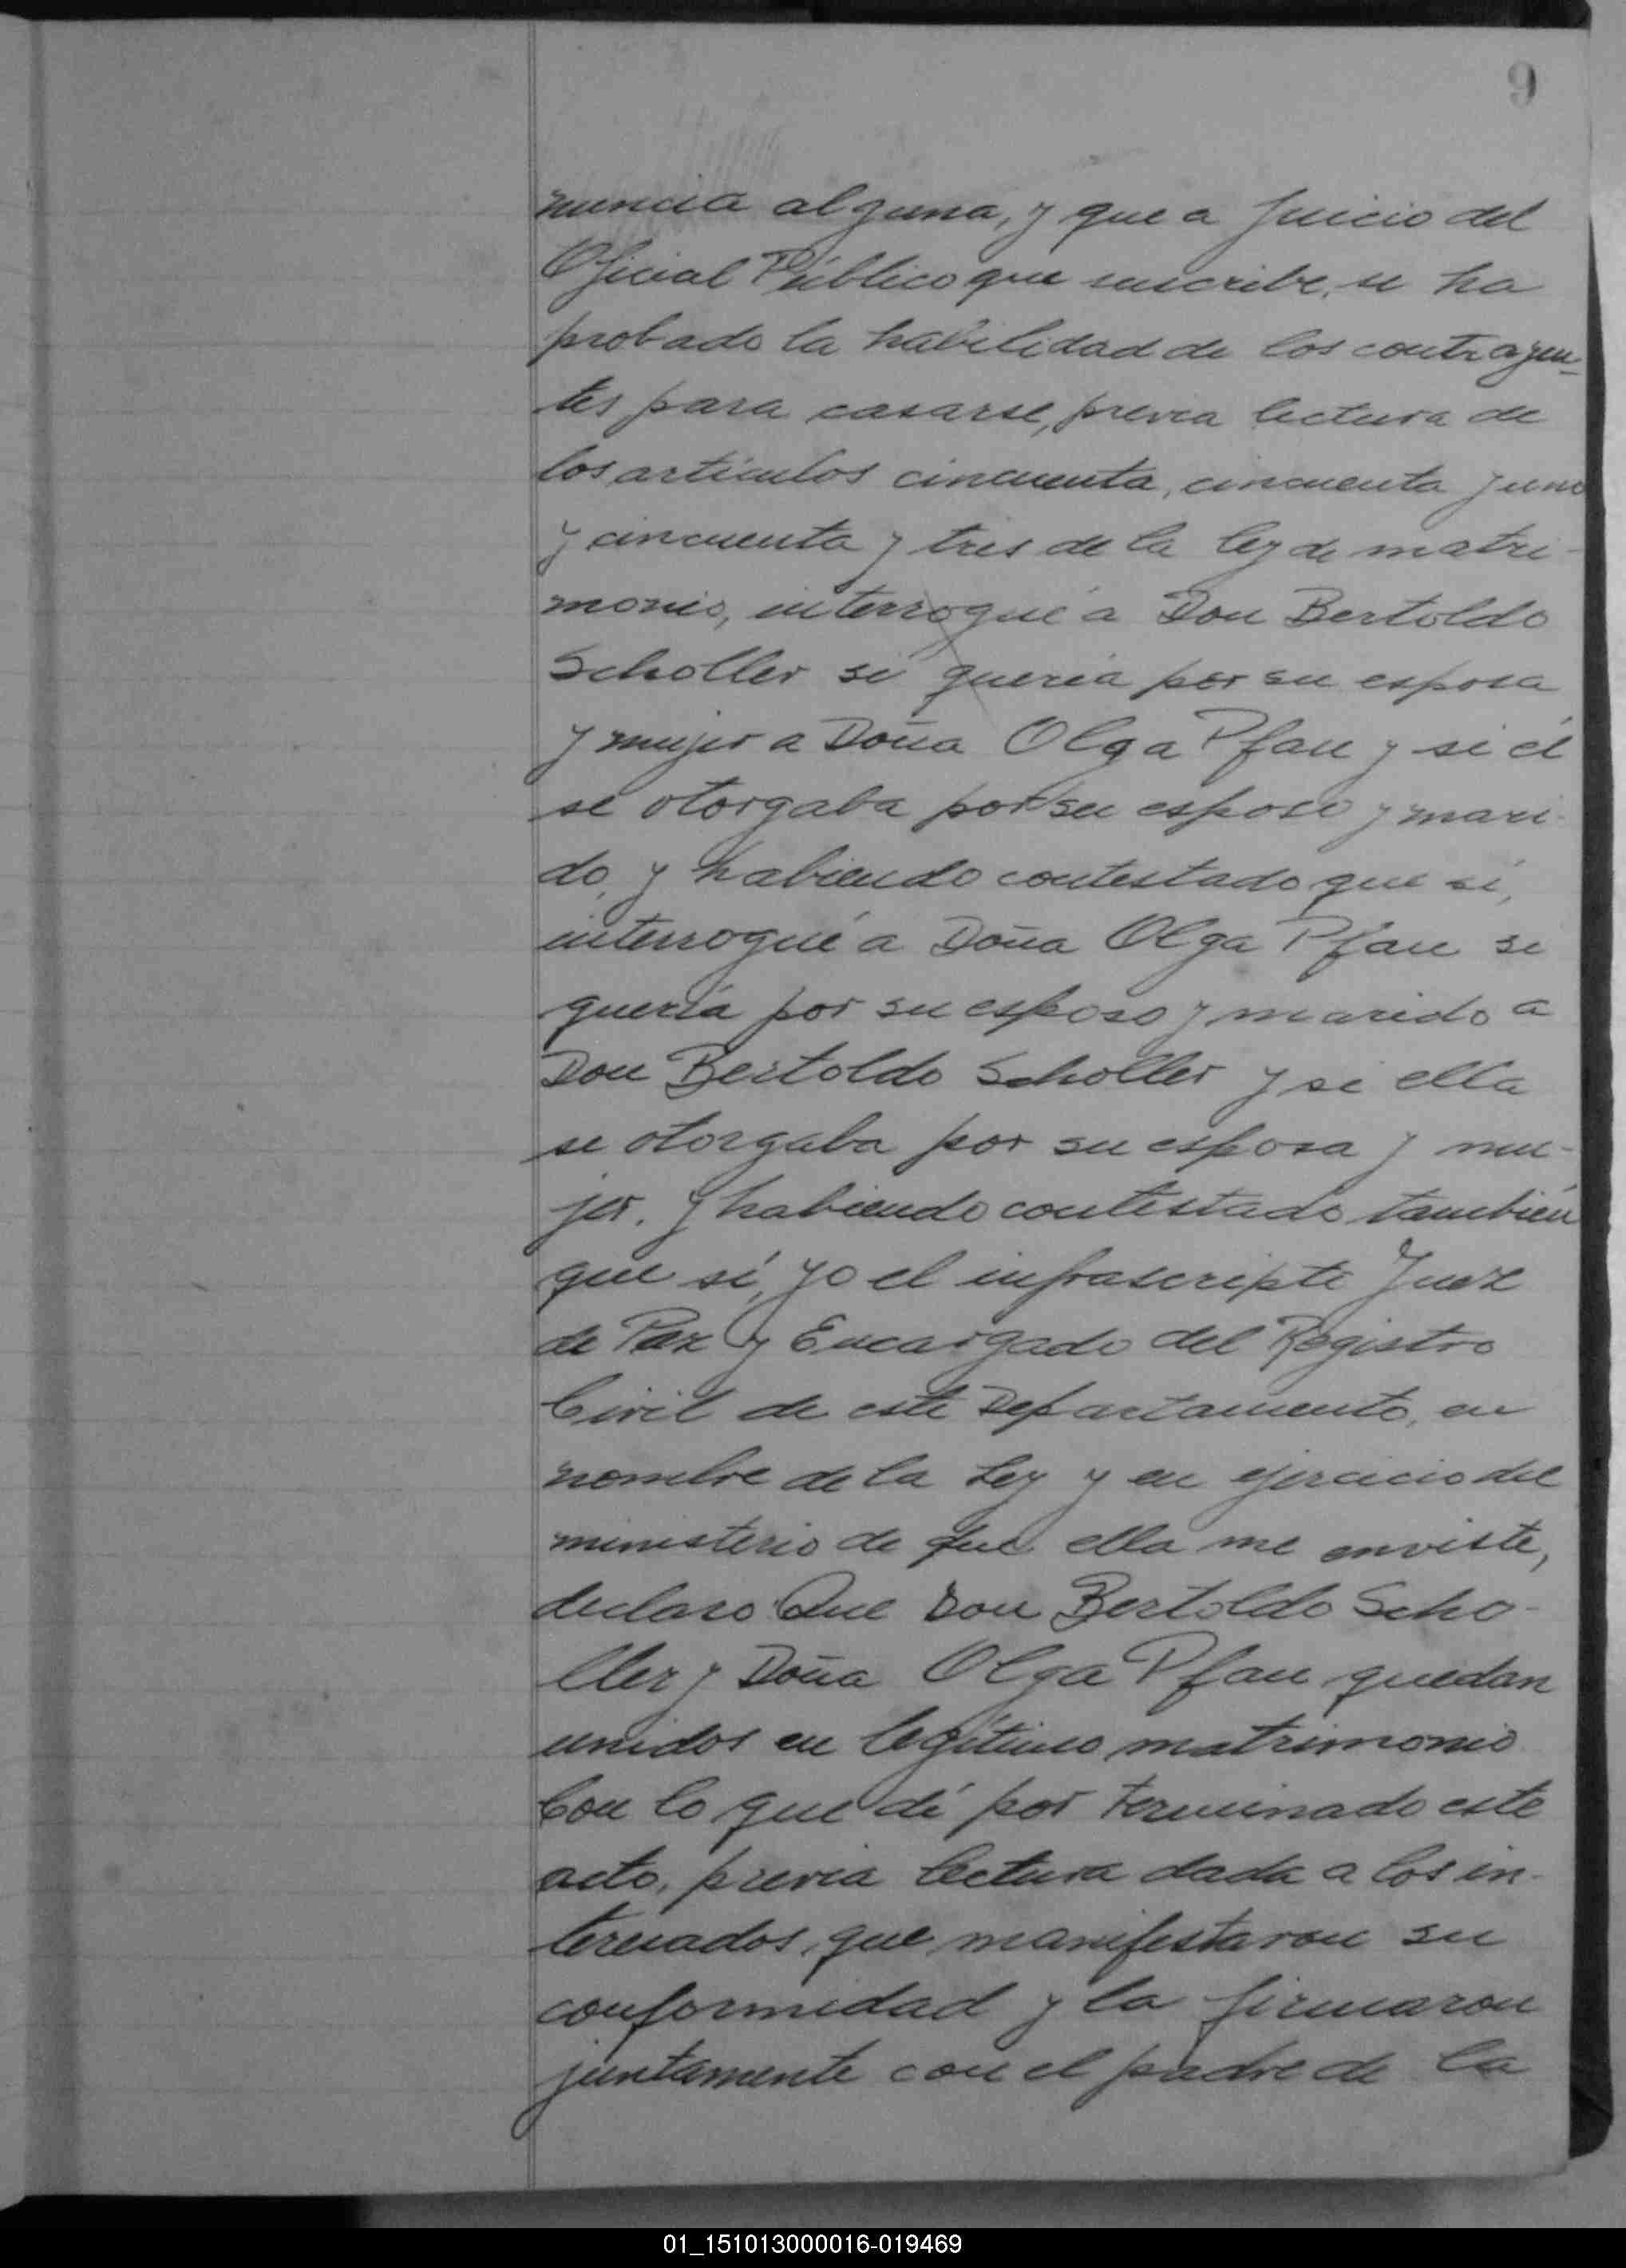 9
nuncia alguna, y que a Juicio del
Oficial Público que suscribe, se ha
probado la habilidad de los contrayen-
tes para casarse, previa lectura de
los artículos cincuenta, cincuenta y uno
y cincuenta y tres de la ley de matri-
monio, interrogué a Don Bertoldo
Scholler si quería por su esposa
y mujer a Doña Olga Pfau y si él
se otorgaba por su esposo y mari-
do, y habiendo contestado que sí,
interrogué a Doña Olga Pfau si
quería por su esposo y marido a
Don Bertoldo Scholler y si ella
se otorgaba por su esposa y mu-
jer. y habiendo contestado también
que sí, yo el infrascripto Juez
de Paz y Encargado del Registro
Civil de este Departamento, en
nombre de la Ley y en ejercicio del
ministerio de que ella me enviste,
declaro Que Don Bertoldo Scho-
ller y Doña Olga Pfau quedan
unidos en legítimo matrimonio
Con lo que dí por terminado este
acto, previa lectura dada a los in-
teresados, que manifestaron su
conformidad y la firmaron
juntamente con el padre de la
01_151013000016-019469